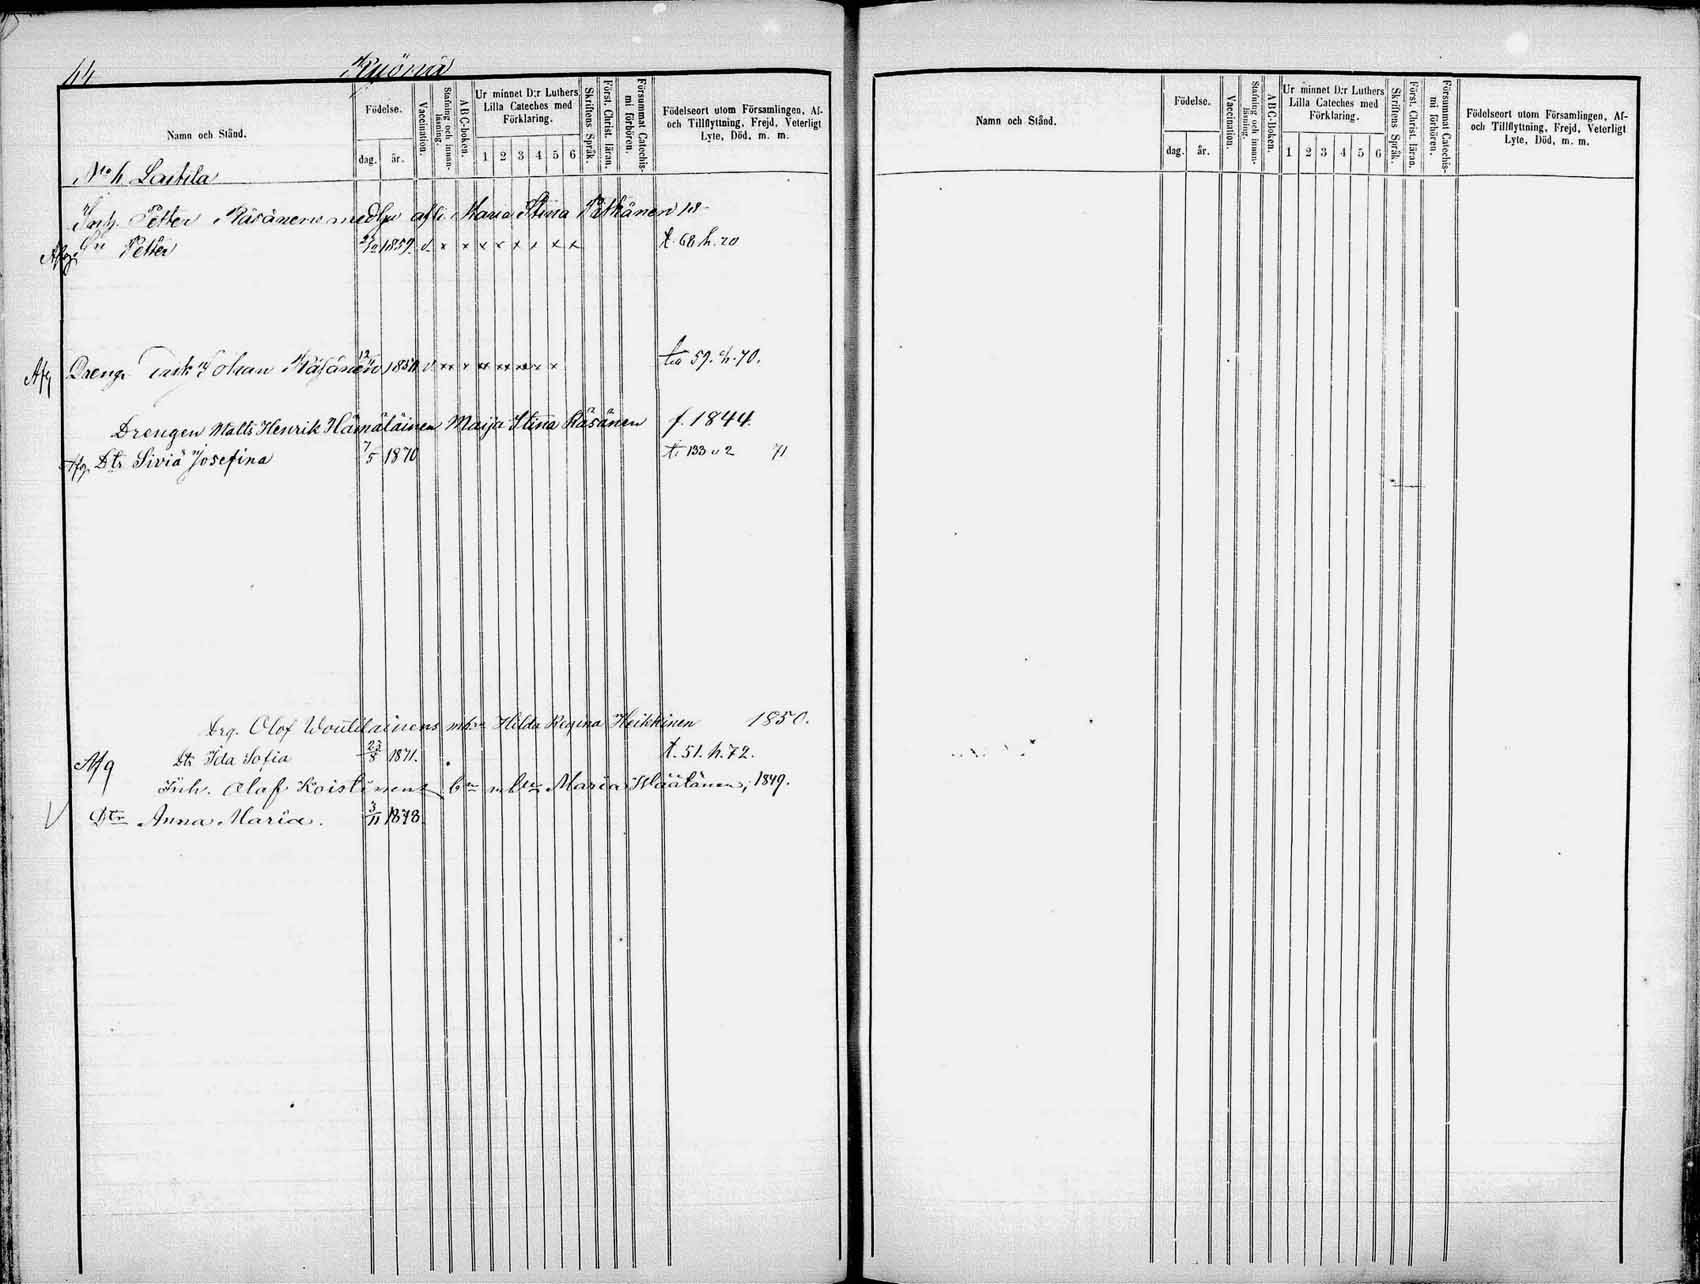 44
Ryönä
Namn och Stånd.
Födelse.
dag. år.
Vaccination.
Stafning och innan-läsning.
ABC-boken.
Ur minnet D:r Luthers Lilla Cateches med Förklaring.
1 2 3 4 5 6
Skriftens Språk.
Först. Christ. läran.
Försummat Catechis-mi förhören.
Födelseort utom Församlingen, Af-och Tillflyttning, Frejd, Veterligt Lyte, Död, m. m.
No 4 Lastila
Inh. Petter Räsänens medhje Maria Stina 18
Afg. Petter 1859. v x x x x x x x x t. 68 h. 70
Afg Dreng. Erik Johan Räsänen 1850 v. x x x x x x x 59. h. 70.
Drengen Matts Henrik Hämäläinen Maija Stina Räsänen f. 1844.
Afg. Dtr Siviä Josefina 7/5 1870 t. 133 v 2 71
Drg. Olof Woutilainens mhu Hilda Regina Heikkinen 1850.
Afg Dtr Ida Sofia 23/8 1871. t. 51. h. 72.
Inh. Olof Koistinens mhu Maria Väätänen, 1849.
√ Dtr Anna Maria. 3/11 1878.
Namn och Stånd.
Födelse.
dag. år.
Vaccination.
Stafning och innan-läsning.
ABC-boken.
Ur minnet D:r Luthers Lilla Cateches med Förklaring.
1 2 3 4 5 6
Skriftens Språk.
Först. Christ. läran.
Försummat Catechis-mi förhören.
Födelseort utom Församlingen, Af-och Tillflyttning, Frejd, Veterligt Lyte, Död, m. m.